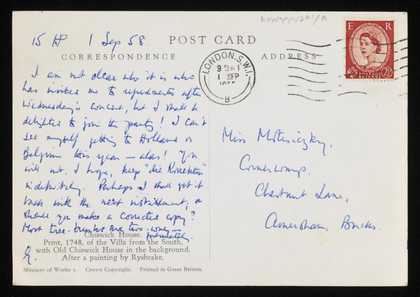 15 HP 1 Sep 58
POST CARD
CORRESPONDENCE
ADDRESS
LONDON. S.W.1.
1 SEP
B
E R
I am not clear who it is who
has invited me to refreshments after
Wednesday's concert, but I shall be
delighted to join the party! I can't
see myself getting to Holland or
Belgium this year — alas! You
will not, I hope, keep "die
indefinitely. Perhaps I shall get it
back with the next instalment, or
shall you make a corrected copy?
Most tree-trunks are two
Miss Motesiczky,
Cornerways,
Chestnut Lane,
Amersham, Bucks.
Chiswick House.
Print, 1748, of the Villa from the South,
with Old Chiswick House in the background.
After a painting by Rysbrake.
Ministry of Works ©. Crown Copyright. Printed in Great Britain.